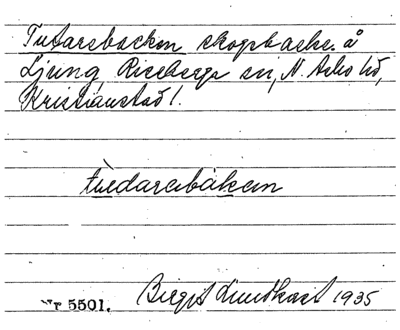 Tutarebacken skogsbacke å
Ljung Riseberga sn, N. Åsbo hd,
Kristianstad l.
tuedarebakken
Nr 5501. Birgit Lundkvist 1935